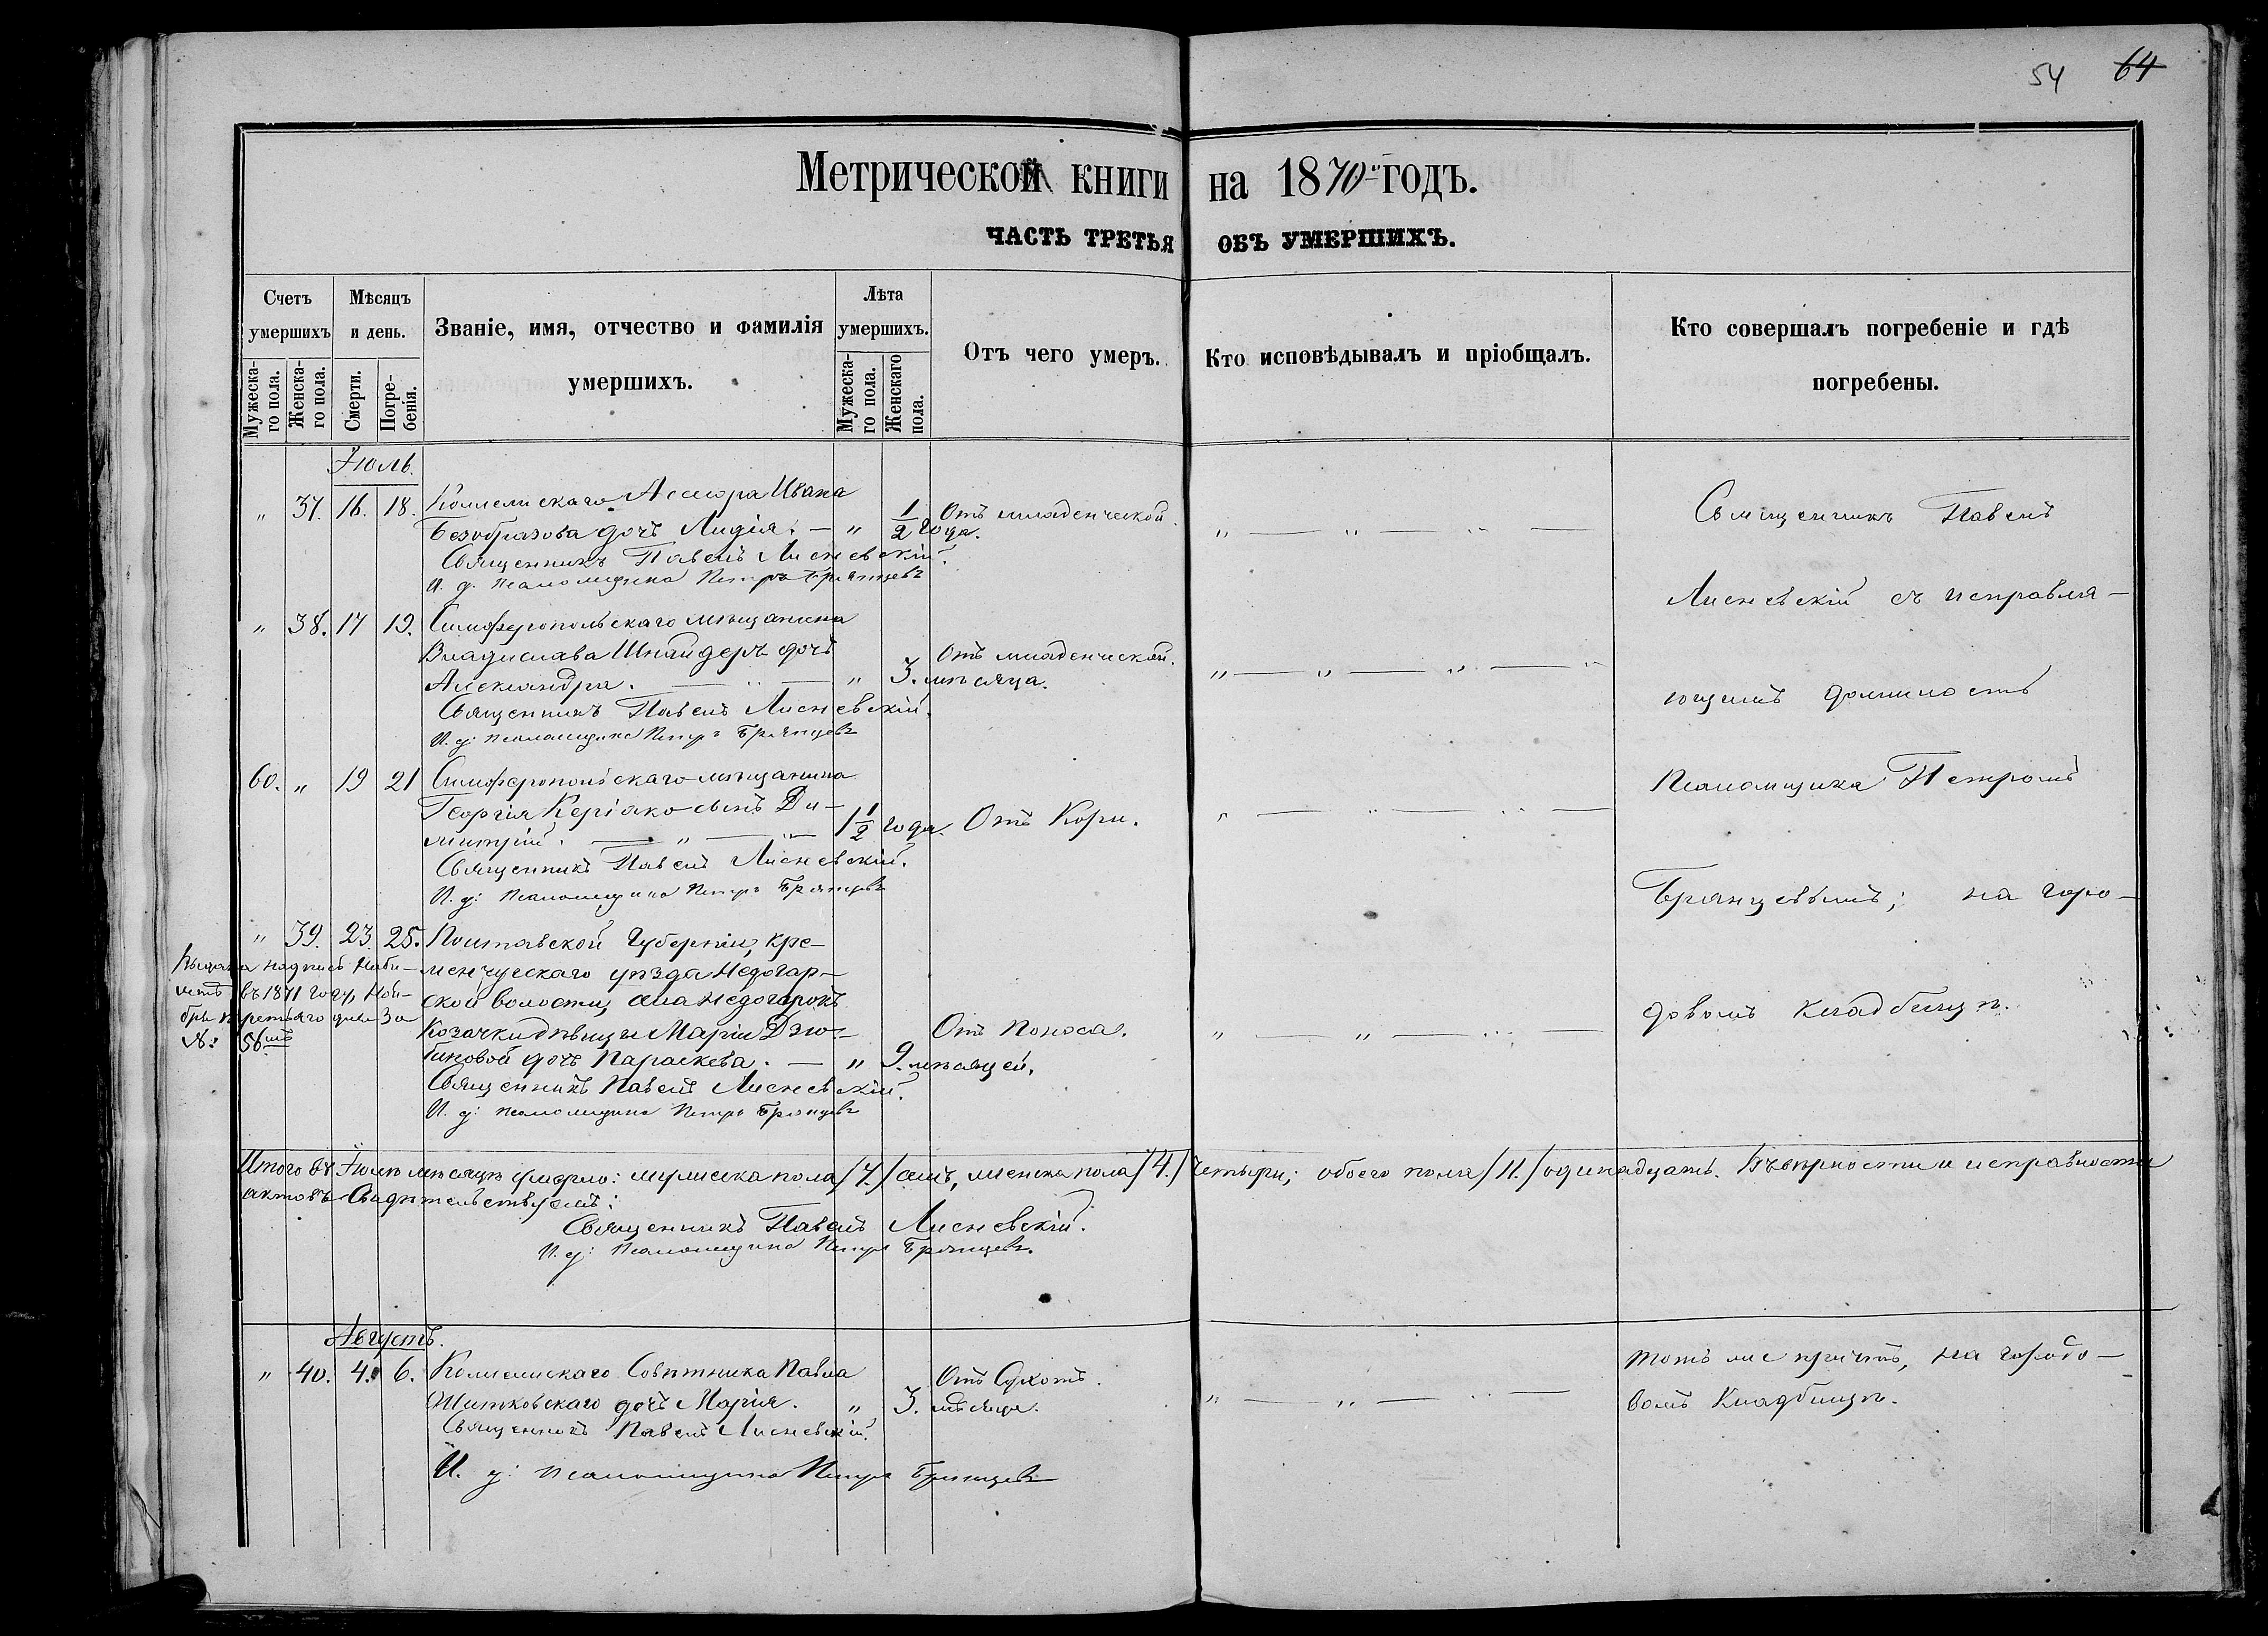 54 64
Метрической книги на 1870 годъ.
ЧАСТЬ ТРЕТЬЯ ОБЪ УМЕРШИХЪ.
Счетъ умершихъ
Мужеска-го пола.
Женска-го пола.
Мѣсяцъ и день.
Смерти.
Погре-бенія.
Званіе, имя, отчество и фамилія умершихъ.
Лѣта умершихъ.
Мужеска-го пола.
Женскаго пола.
Отъ чего умеръ.
Кто исповѣдывалъ и пріобщалъ.
Кто совершалъ погребеніе и гдѣ погребены.
Іюль.
" 37. 16. 18. Коллежскаго Асессора Ивана
Безобразова дочь Лидія. — " 1/2 года. Отъ младенческой.
Священникъ Павелъ Лисневскій.
И. д. псаломщика Петръ Брянцевъ
" 38. 17 19. Симферопольскаго мѣщанина
Владислава Шнайдеръ дочь
Александра. — " 3. мѣсяца. Отъ младенческой.
Священникъ Павелъ Лисневскій.
И. д: псаломщика Петръ Брянцевъ
60. " 19 21 Симферопольскаго мѣщанина
Георгія Керіако сынъ Ди-
митрій. — " — 1 1/2 года. Отъ Кори.
Священникъ Павелъ Лисневскій.
И. д: псаломщика Петръ Брянцевъ
" 39. 23. 25. Полтавской Губерніи, Кре-
менчугскаго уѣзда Недогар-
ской волости, села Недогарокъ
Козачки дѣвицы Маріи Дзю-
биновой дочь Параскева. — " 9. мѣсяцей. Отъ Поноса.
Священникъ Павелъ Лисневскій.
И. д: псаломщика Петръ Брянцевъ
въ 1871 году, Ноя-
бря третьяго дня за
№: 56
Священникъ Павелъ
Лисневскій съ исправля-
ющимъ должность
Псаломщика Петромъ
Брянцевымъ; на горо-
довомъ кладбищѣ.
Итого въ Іюлѣ мѣсяцѣ умерло: мужеска пола /7./ семь, женска пола /4./ четыри; обоего пола /11./ одинадцать. Въ вѣрности и исправности
актовъ Свидѣтельствуемъ:
Священникъ Павелъ Лисневскій.
И. д: Псаломщика Петръ Брянцевъ.
Августъ.
" 40. 4. 6. Коллежскаго Совѣтника Павла
Житковскаго дочь Марія. " 3. мѣсяца. Отъ Сухотъ.
Священникъ Павелъ Лисневскій.
И. д: псаломщика Петръ Брянцевъ
тотъ же причтъ, на городо-
вомъ Кладбищѣ.